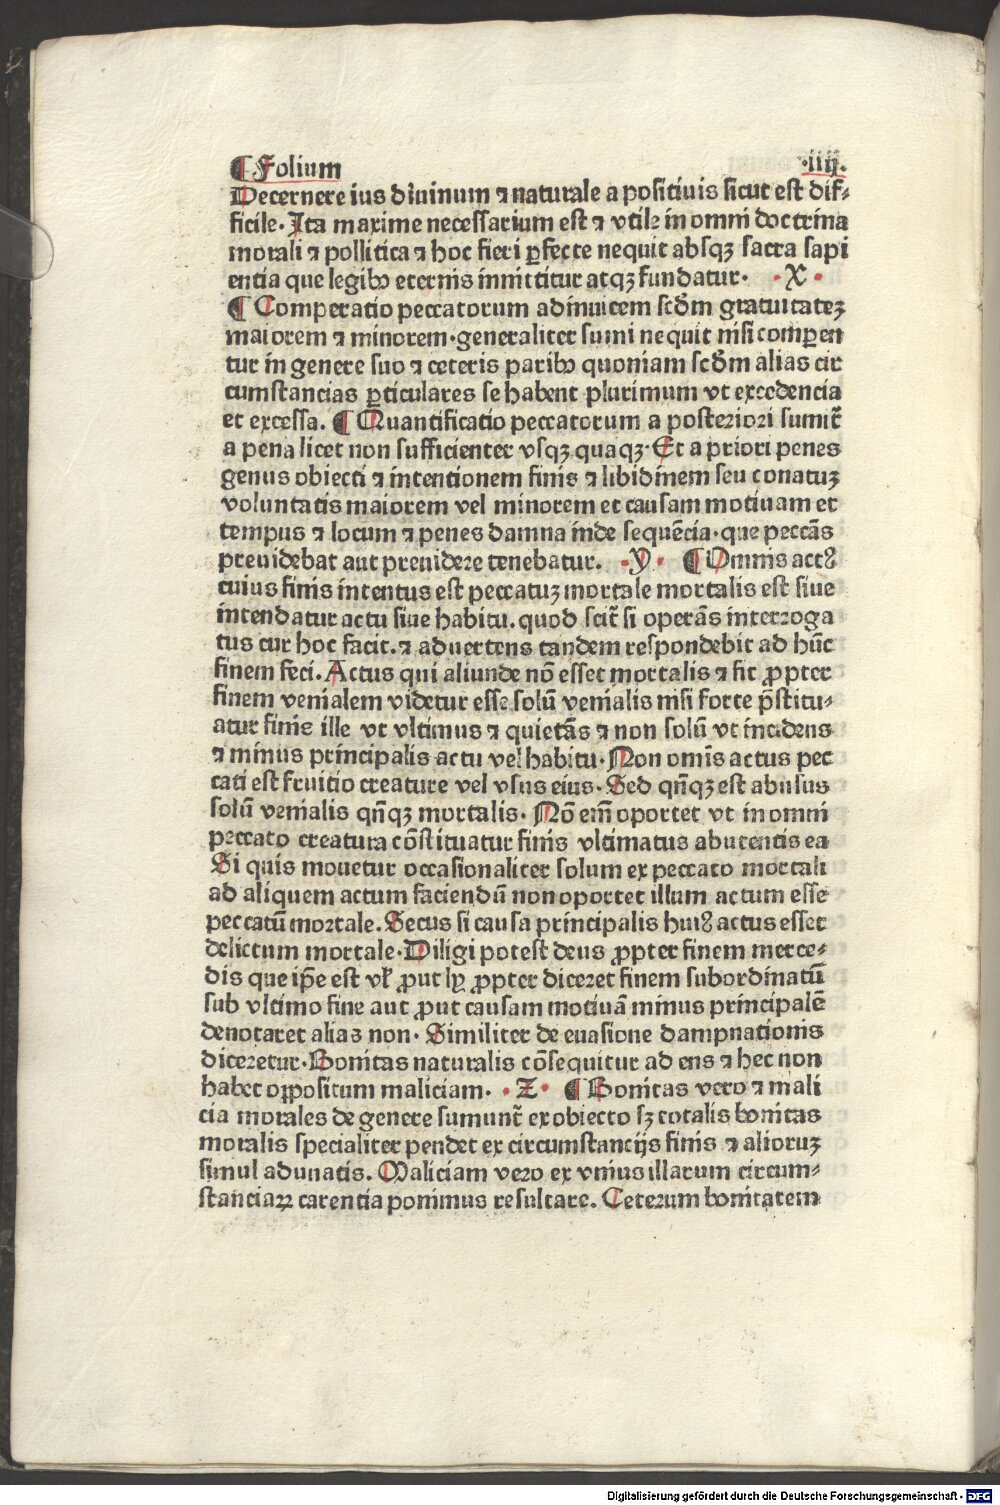 ¶ Folium ·iiij.
Decernere ius diuinum ⁊ naturale a positiuis sicut est dif⸗
ficile. Ita maxime necessarium est ⁊ vtile in omni doctrina
morali ⁊ pollitica ⁊ hoc fieri ꝑfecte nequit absqꝫ sacra sapi
entia que legibꝰ eternis innititur atqꝫ fundatur. ·X·
¶ Comperatio peccatorum adinuicem scd̄m gratuitateꝫ
maiorem ⁊ minorem·generaliter sumi nequit nisi comꝑen
tur in genere suo ⁊ ceteris paribꝰ quoniam scd̄m alias cir
cumstancias ꝑticulares se habent plurimum vt excedencia
et excessa. ¶ Quantificatio peccatorum a posteriori sumit̄
a pena licet non sufficienter vsqꝫ quaqꝫ· Et a priori penes
genus obiecti ⁊ intentionem finis ⁊ libidinem seu conatuꝫ
voluntatis maiorem vel minorem et causam motiuam et
tempus ⁊ locum ⁊ penes damna inde sequēcia·que peccās
preuidebat aut preuidere tenebatur. ·y· ¶ Omnis actꝰ
cuius finis intentus est peccatuꝫ mortale mortalis est siue
intendatur actu siue habitu. quod scit̄ si operās interroga
tus cur hoc facit. ⁊ aduertens tandem respondebit ad hūc
finem feci. Actus qui aliunde nō esset mortalis ⁊ fit ꝓpter
finem venialem videtur esse solū venialis nisi forte p̄stitu⸗
atur finis ille vt vltimus ⁊ quietās ⁊ non solū vt incidens
⁊ minus principalis actu vel habitu· Non om̄is actus pec
cati est fruitio creature vel vsus eius· Sed qn̄qꝫ est abusus
solū venialis qn̄qꝫ mortalis. Nō em̄ oportet vt in omni
peccato creatura cōstituatur finis vltimatus abutentis ea
Si quis mouetur occasionaliter solum ex peccato mortali
ad aliquem actum faciendū non oportet illum actum esse
peccatū mortale. Secus si causa principalis huiꝰ actus esset
delictum mortale· Diligi potest deus ꝓpter finem merce⸗
dis que ip̄e est vł ꝓut ly ꝓpter diceret finem subordinatū
sub vltimo fine aut ꝓut causam motiuā minus principalē
denotaret alias non· Similiter de euasione dampnationis
diceretur· Bonitas naturalis cōsequitur ad ens ⁊ hec non
habet oꝓpositum maliciam. ·Z· ¶ Bonitas vero ⁊ mali
cia morales de genere sumunt̄ ex obiecto sꝫ totalis bonitas
moralis specialiter pendet ex circumstancijs finis ⁊ alioruꝫ
simul adunatis. Maliciam vero ex vnius illarum circum⸗
stanciaꝝ carentia ponimus resultare. Ceterum bonitatem
Digitalisierung gefördert durch die Deutsche Forschungsgemeinschaft - DFG